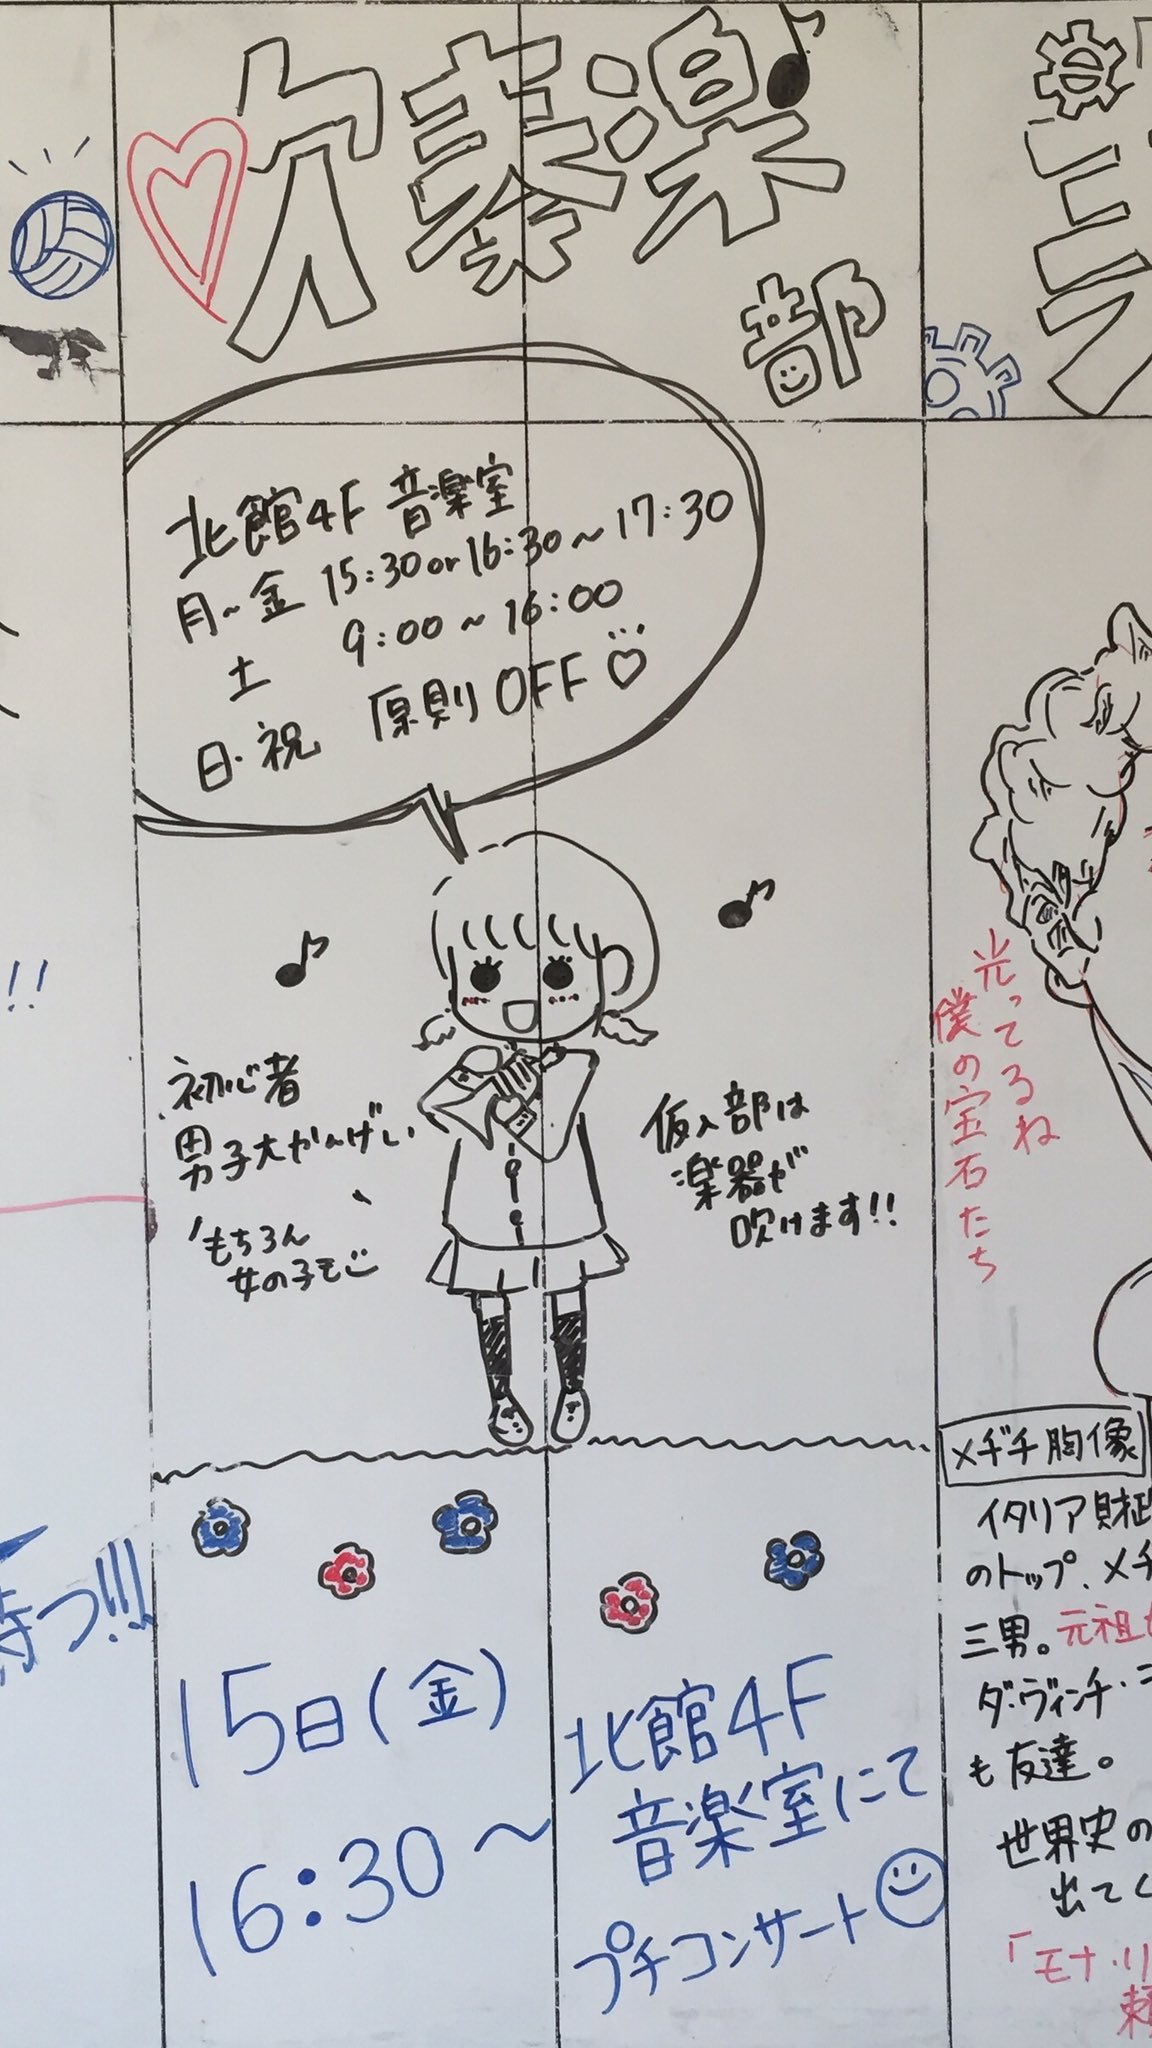 吹奏楽
部
北館4F 音楽室
月~金 15:30or16:30~17:30
土 9:00~16:00
日・祝 原則OFF♡
初心者
男子大かんげい
もちろん
女の子も
仮入部は
楽器が
吹けます!!
15日(金)
16:30~
北館4F
音楽室にて
プチコンサート
!!
待つ!!!
光ってるね
僕の宝石たち
メヂチ胸像
イタリア財政
のトップ、メチ
三男。元祖
ダ・ヴィンチ・
も友達。
世界史の
出てく
「モナ・リ
頼